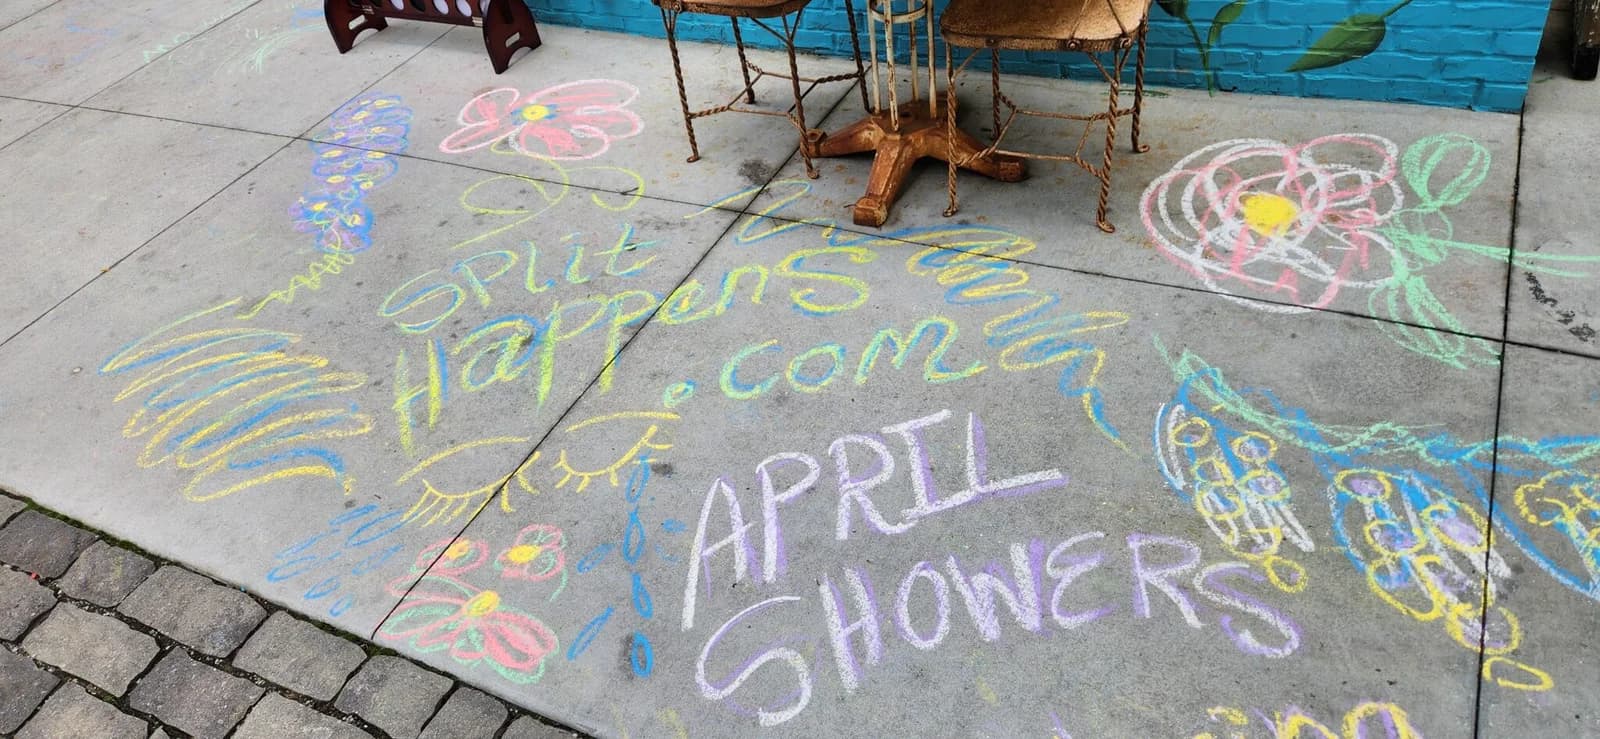 Split
Happens
.com
APRIL
SHOWERS